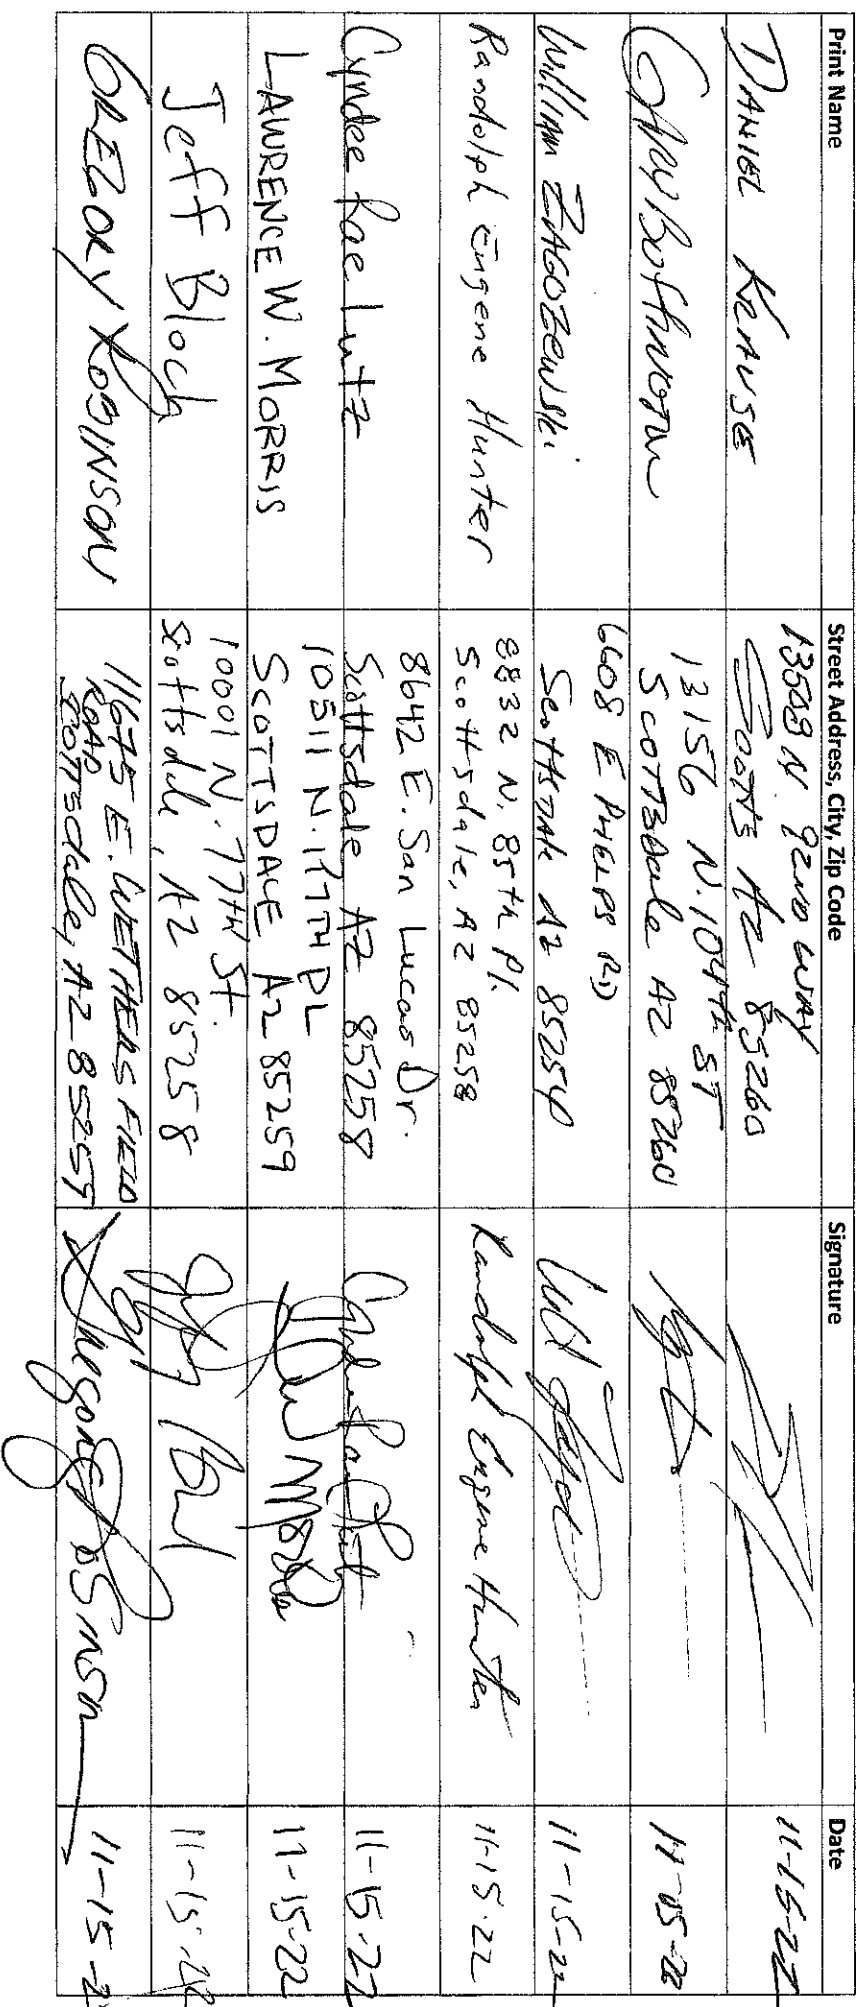 Print Name
Street Address, City, Zip Code
Signature
Date
DANIEL KRAUSE
13508 N. 92ND WAY
Scotts AZ 85260
11-15-22
13156 N. 104th ST
SCOTTSDALE AZ 85260
11-15-22
William ZAGOZEWSKI
6608 E PHELPS RD
Scottsdale AZ 85254
11-15-22
Randolph Eugene Hunter
8832 N. 85th Pl.
Scottsdale, AZ 85258
Randolph Eugene Hunter
11-15-22
Cyndee Rae Lutz
8642 E. San Lucas Dr.
Scottsdale AZ 85258
11-15-22
LAWRENCE W. MORRIS
10511 N. 117TH PL
SCOTTSDALE AZ 85259
11-15-22
Jeff Block
10001 N. 77TH St.
Scottsdale, AZ 85258
11-15-22
GREGORY ROBINSON
11675 E. WETHERSFIELD
ROAD
SCOTTSdale, AZ 85259
11-15-2